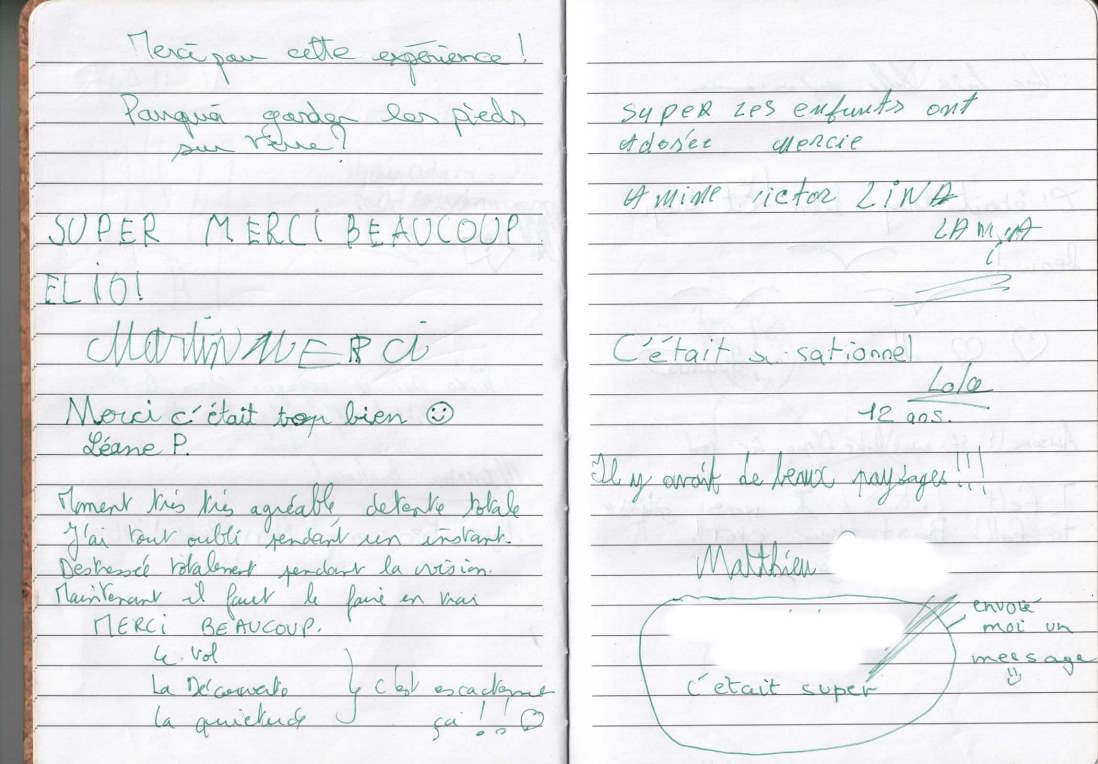 Merci pour cette expérience !
Pourquoi garder les pieds
sur Terre ?
SUPER MERCI BEAUCOUP
ELIO !
Martin MERCi
Merci c'était trop bien ☺
Léane P.
Moment très très agréable detente totale
J'ai tout oublié pendant un instant.
Destressée totalement pendant la vision.
Maintenant il faut le faire en vrai
MERCi BEAUCOUP.
Le Vol
La Découverte
la quietude
c'est exactement
ça !!! ☺
SUPER LES enfants ont
Adorée mercie
Amine victor LiNA
LAMiA
C'était sensationnel
Lola
12 ans.
Il y avait de beaux paysages !!!
Matthieu
envoie
moi un
message
☺
c'etait super